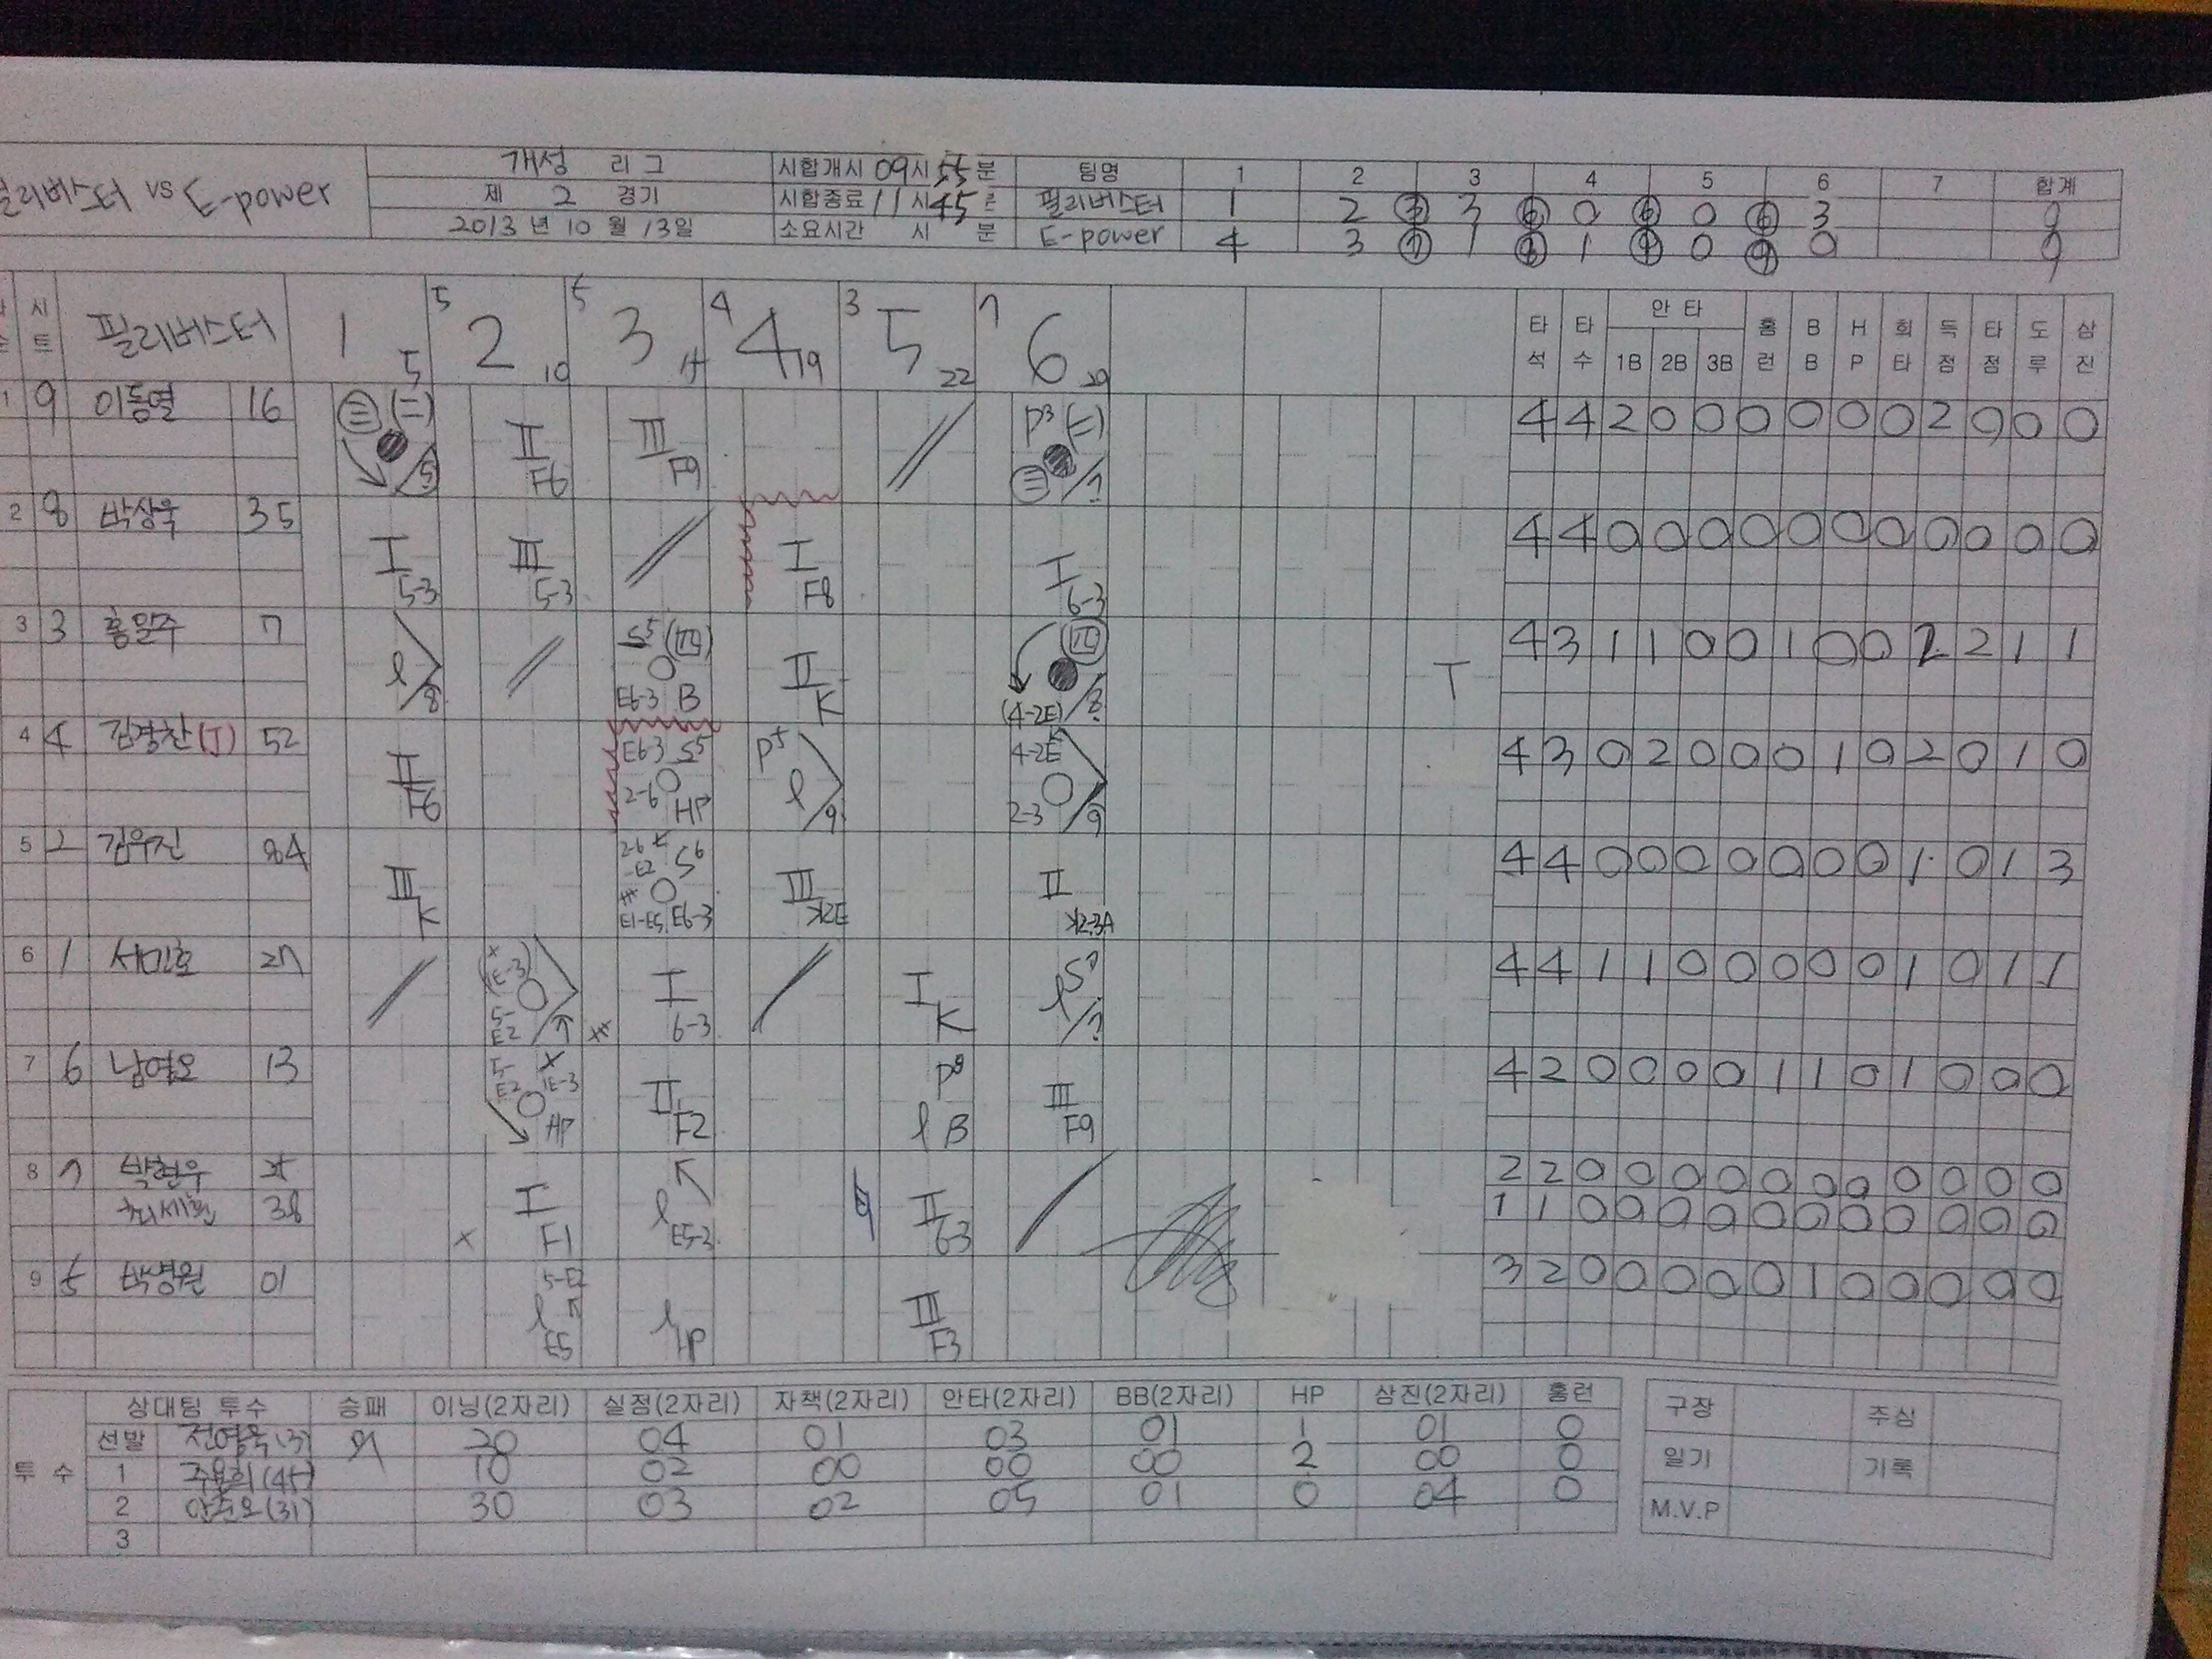 필리버스터 vs E-power
개성 리그
제 2 경기
2013 년 10 월 13일
시합개시 09시 55분
시합종료 11시 45분
소요시간 시 분
팀명 1 2 3 4 5 6 7 합계
필리버스터 1 2 ③ 3 ⑥ 0 ⑥ 0 ⑥ 3 9
E-power 4 3 ⑦ 1 ⑧ 1 ⑨ 0 ⑨ 0 9
시트 필리버스터 1 5 5 2 10 5 3 15 4 4 19 3 5 22 7 6 29
타석 타수 안타 1B 2B 3B 홈런 BB HP 희타 득점 타점 도루 삼진
1 9 이동열 16 4 4 2 0 0 0 0 0 0 2 0 0 0
II III
F6 F9
2 8 박상욱 35 4 4 0 0 0 0 0 0 0 0 0 0 0
I III I I
5-3 5-3 F8 6-3
3 3 홍일주 7 4 3 1 1 0 0 1 0 0 2 2 1 1
E6-3 B II K (4-2E) T
4 4 김경찬(J) 52 4 3 0 2 0 0 0 1 0 2 0 1 0
II F6 E6-3 S5 2-6 HP P5 9 4-2E 2-3 9
5 2 김우진 84 4 4 0 0 0 0 0 0 0 1 0 1 3
III K 2-6 -E2 S6 E1-E5 E6-3 III K2E II K2-3A
6 1 서민호 27 4 4 1 1 0 0 0 0 0 1 0 1 1
(1E-3) 5-E2 I 6-3 I K
7 6 남영오 13 4 2 0 0 0 0 1 1 0 1 0 0 0
5-E2 1E-3 HP II F2 P8 B III F9
8 7 박현우 2 2 0 0 0 0 0 0 0 0 0 0 0
38 1 1 0 0 0 0 0 0 0 0 0 0 0
I F1 E5-2 II 6-3
9 5 박병원 01 3 2 0 0 0 0 0 1 0 0 0 0 0
5-E2 E5 HP III F3
투수 상대팀 투수 승패 이닝(2자리) 실점(2자리) 자책(2자리) 안타(2자리) BB(2자리) HP 삼진(2자리) 홈런
선발 전영욱(13) 20 04 01 03 01 1 01 0
1 (45) 10 02 00 00 00 2 00 0
2 (31) 30 03 02 05 01 0 04 0
3
구장 주심
일기 기록
M.V.P